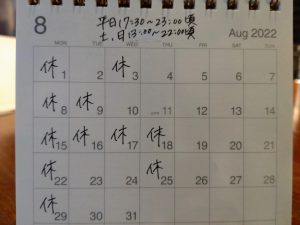 平日17:30~23:00頃
8 土,日13:00~22:00頃 Aug 2022
MON TUE WED THU FRI SAT SUN
休1 2 休3 4 5 6 7
休8 休9 10 11 12 13 14
休15 休16 休17 休18 19 20 21
休22 23 24 休25 26 27 28
休29 30 31